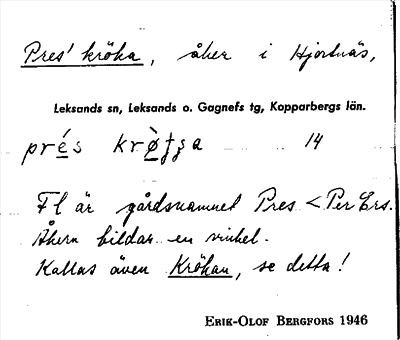 Pres' kröka, åker i Hjortnäs,
Leksands sn, Leksands o. Gagnefs tg, Kopparbergs län.
14
Fl är gårdsnamnet Pres < Per Ers.
Åkern bildar en vinkel.
Kallas även Krökan, se detta!
ERIK-OLOF BERGFORS 1946